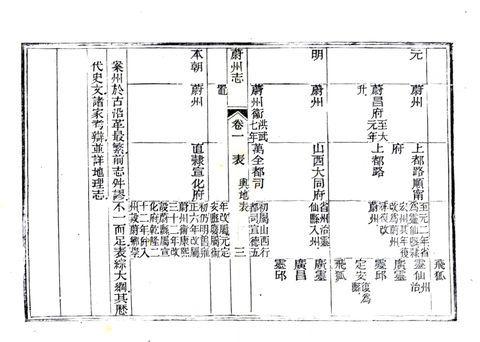 元 蔚州 上都路順甯府 飛狐 靈仙 州治
升 蔚昌府 至大元年 上都路 定安 飛狐
明 蔚州 山西大同府 省州治靈仙縣入州 廣靈
蔚州衛 洪武七年 萬全都司 初屬山西行都司宣德五 廣昌 靈邱
蔚州志 卷一 表 輿地表 三
置
本朝 蔚州 直隸宣化府 初仍明舊雍正六年改屬 蔚州衛康熙三十二年改設蔚縣屬宣化府乾隆二十二年併入州設蔚鄉學
案州於古沿革最繁前志舛謬不一而足表綜大綱其歷
代史文諸家考辯並詳地理志